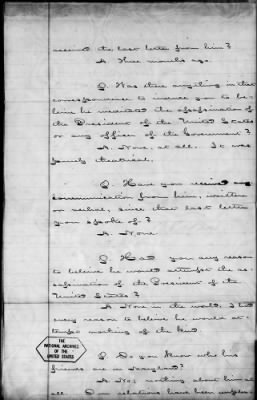 received the last letter from him?
A. Three months ago.
Q. Was there anything in that
correspondence to induce you to be-
lieve he meditated the assassination of
the President of the United States
or any officer of the Government?
A. None, at all. It was
purely theatrical.
Q. Have you received any
communication from him, written
or verbal, since that last letter
you spoke of?
A. None.
Q. Had you any reason
to believe he would attempt the as-
sassination of the President of the
United States?
A. None in the world. I had
every reason to believe he would at-
tempt nothing of the kind.
Q. Do you know who his
friends are in Maryland?
A. No; nothing about him at
all. Our relations have been
THE
NATIONAL ARCHIVES
OF THE
UNITED STATES